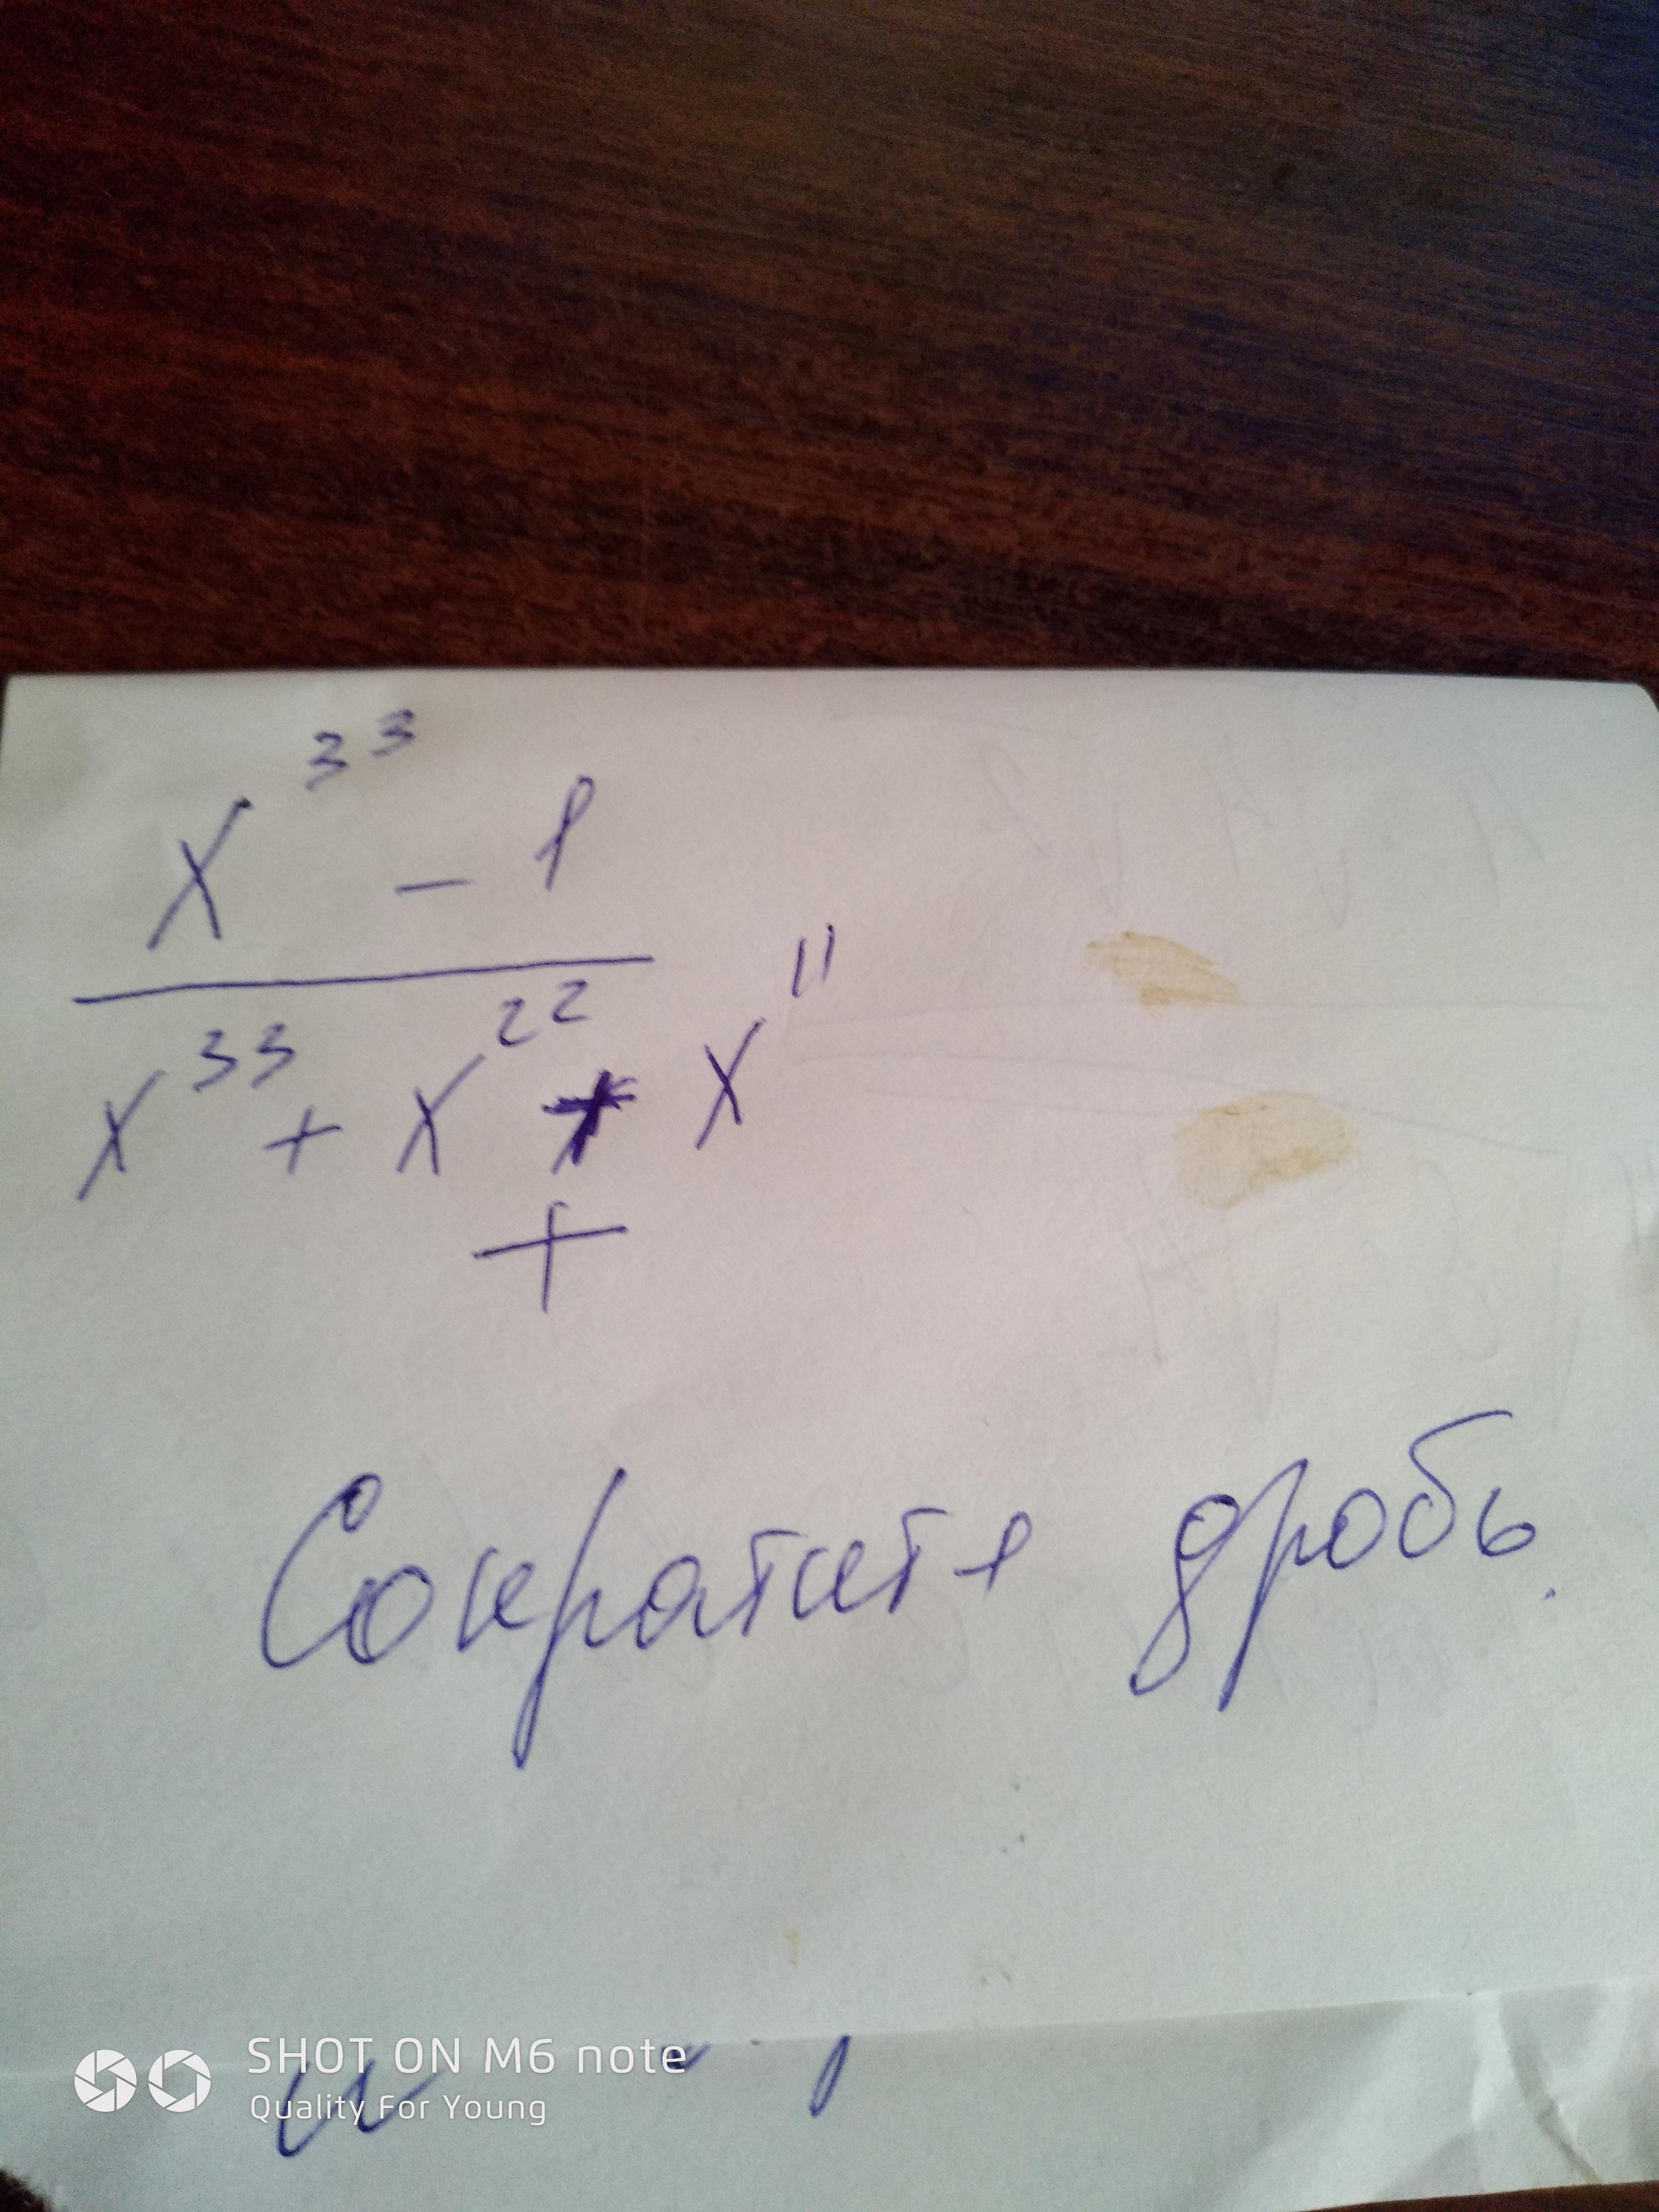 x³³ - 1
x³³ + x²² + x¹¹
+
Сократите дробь.
SHOT ON M6 note
Quality For Young